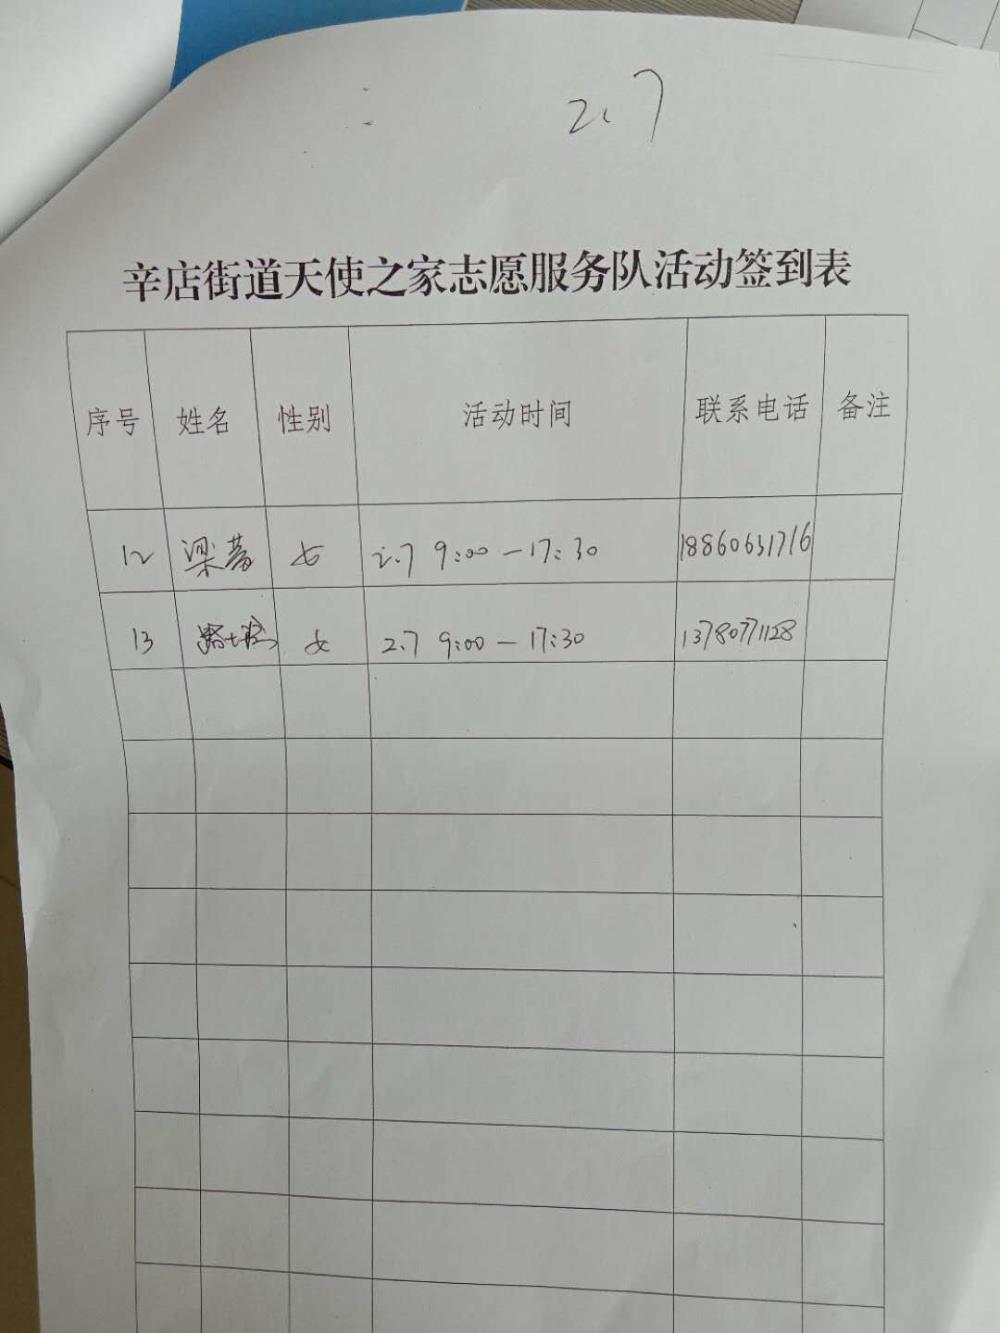 2.7
辛店街道天使之家志愿服务队活动签到表
序号 姓名 性别 活动时间 联系电话 备注
12 梁 女 2.7 9:00-17:30 18860631716
13 女 2.7 9:00-17:30 13780771128